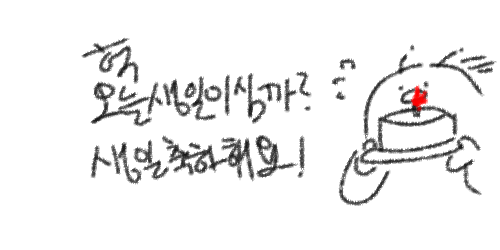 헉
오늘생일이심까?
생일축하해요!